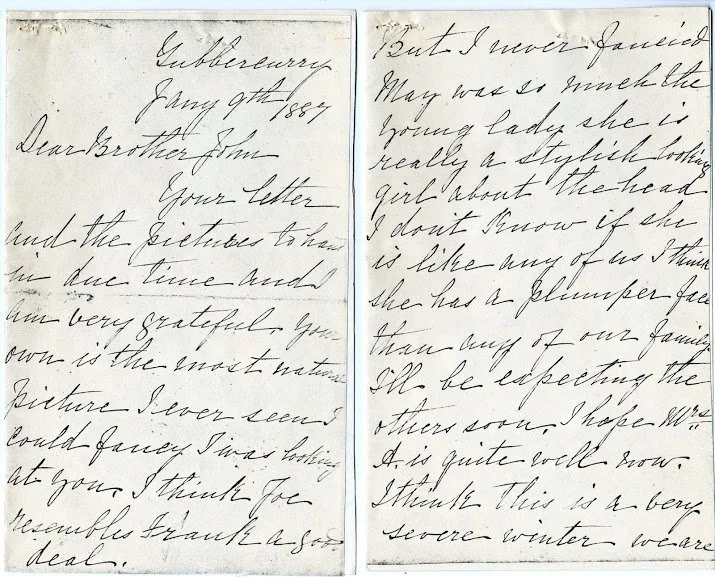 Gubbercurry
Jany 9th 1887
Dear Brother John
Your letter
and the pictures to hand
in due time and I
am very grateful. Your
own is the most natural
picture I ever seen I
could fancy I was looking
at you. I think Joe
resembles Frank a good
deal.
But I never fancied
May was so much the
young lady she is
really a stylish looking
girl about the head
I don't know if she
is like any of us I think
she has a plumper face
than any of our family
I'll be expecting the
others soon. I hope Mrs.
A. is quite well now.
I think this is a very
severe winter we are